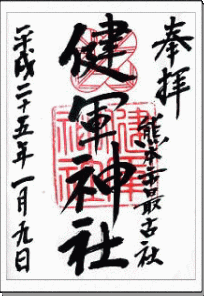 奉拝
熊本市最古社
健軍神社
健軍神社
平成二十五年一月九日